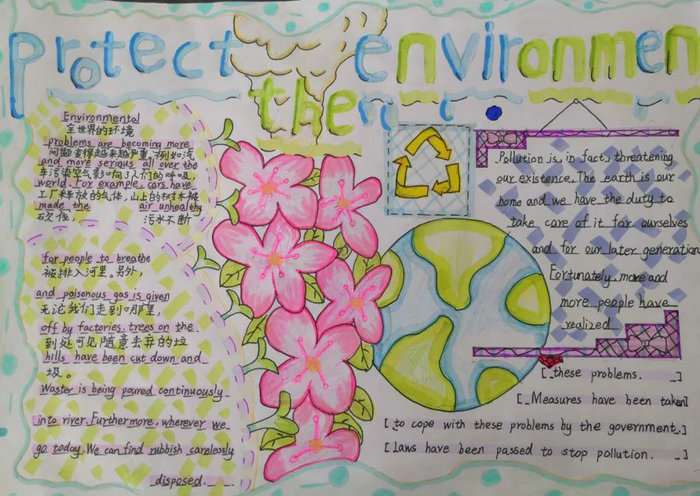 protect the environmen
Environmental
全世界的环境
problems are becoming more
问题变得越来越严重,例如汽
and more serious all over the
车污染空气影响了人们的呼吸
world. For example, cars have
工厂释放的气体,山上的树木被
made the air unhealhy
砍伐, 污水不断
for people to breathe
被排入河里。另外,
and poisonous gas is given
无论我们走到哪里,
off by factories. trees on the
到处可见随意丢弃的垃
hills have been cut down and
圾。
Waster is being poured continuously
into river. Furthermore, wherever we
go today. We can find rubbish carelessly
disposed.
Pollution is, in fact, threatening
our existence. The earth is our
home and we have the duty to
take care of it for ourselves
and for our later generation
Fortunately, more and
more people have
realized
[ these problems. ]
[ Measures have been taken]
[ to cope with these problems by the government.]
[ laws have been passed to stop pollution. ]